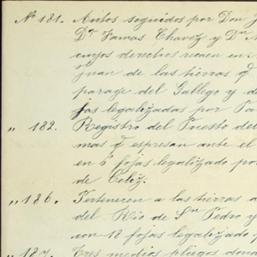 Nº 181. Autos seguidos por Don J
Dn. Tomas Chavez y Dn.
cuyos derechos recaen en
Juan de las tierras q
parage del Gallego y d
fas legalizadas por
" 182. Registro del Puesto de
mas q espresan ante el
en 6 fojas legalizado po
de Celiz.
" 186. Pertenecen a las tierras
del Rio de Sn. Pedro y
con 18 fojas legalizado
" 187. Tres medios pliegos